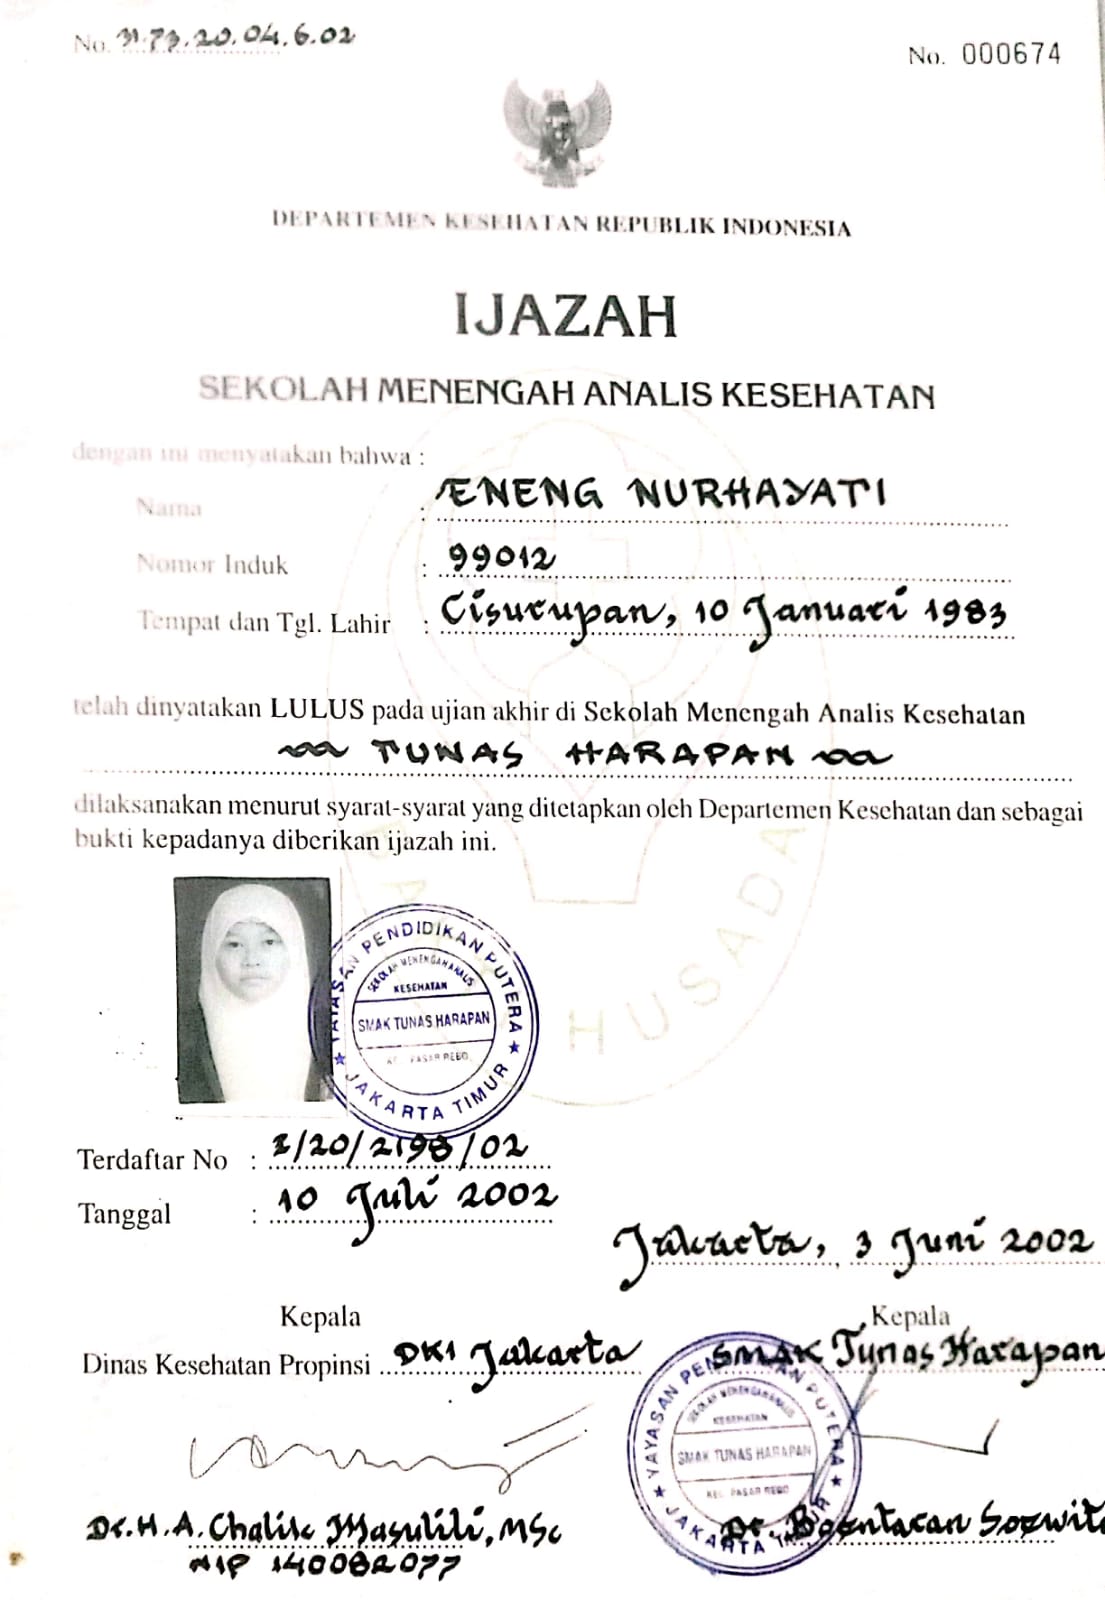 No. 31.73.20.04.6.02
No. 000674
DEPARTEMEN KESEHATAN REPUBLIK INDONESIA
IJAZAH
SEKOLAH MENENGAH ANALIS KESEHATAN
dengan ini menyatakan bahwa :
Nama : ENENG NURHAYATI
Nomor Induk : 99012
Tempat dan Tgl. Lahir : Cisurupan, 10 Januari 1983
telah dinyatakan LULUS pada ujian akhir di Sekolah Menengah Analis Kesehatan
TUNAS HARAPAN
dilaksanakan menurut syarat-syarat yang ditetapkan oleh Departemen Kesehatan dan sebagai
bukti kepadanya diberikan ijazah ini.
HUSADA
YAYASAN PENDIDIKAN PUTERA
SEKOLAH MENENGAH ANALIS
KESEHATAN
SMAK TUNAS HARAPAN
KEC. PASAR REBO
JAKARTA TIMUR
Terdaftar No : I/20/2198/02
Tanggal : 10 Juli 2002
Jakarta, 3 Juni 2002
Kepala
Dinas Kesehatan Propinsi DKI Jakarta
Kepala
SMAK Tunas Harapan
YAYASAN PENDIDIKAN PUTERA
SEKOLAH MENENGAH ANALIS
KESEHATAN
SMAK TUNAS HARAPAN
KEC. PASAR REBO
JAKARTA TIMUR
Dr. H. A. Chalik Masulili, MSc
NIP 140082077
Dr. Boentaran Soewit